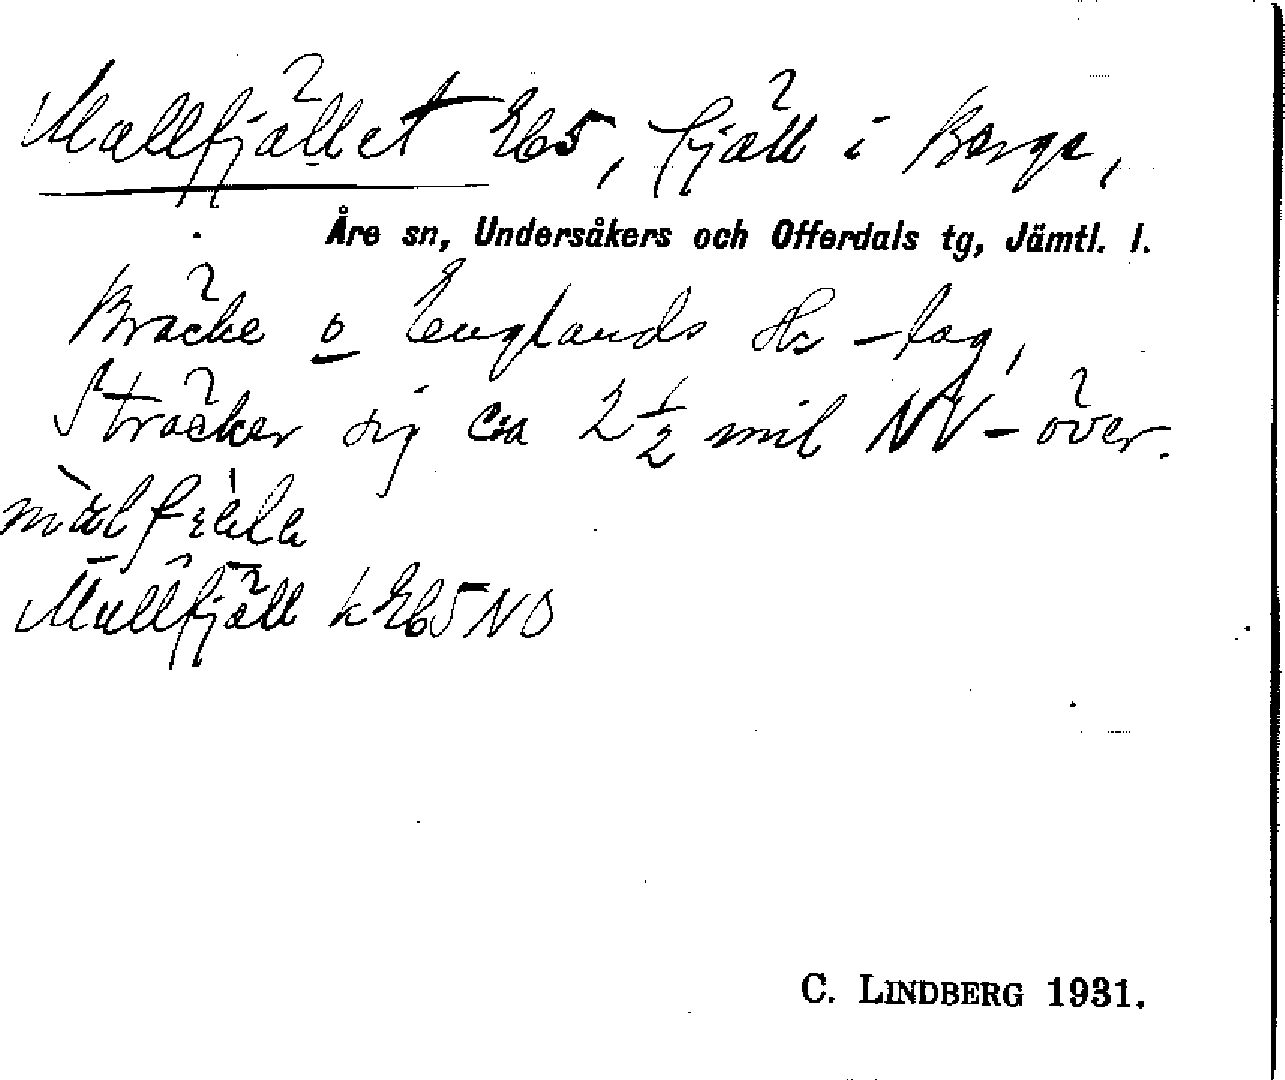 Mallfjället Eb5, fjäll i Berge,
Åre sn, Undersåkers och Offerdals tg, Jämtl. l.
Bräcke o Englands sk-lag,
Sträcker sig ca 2½ mil NV-över.
Mullfjäll k Eb5NO
C. LINDBERG 1931.